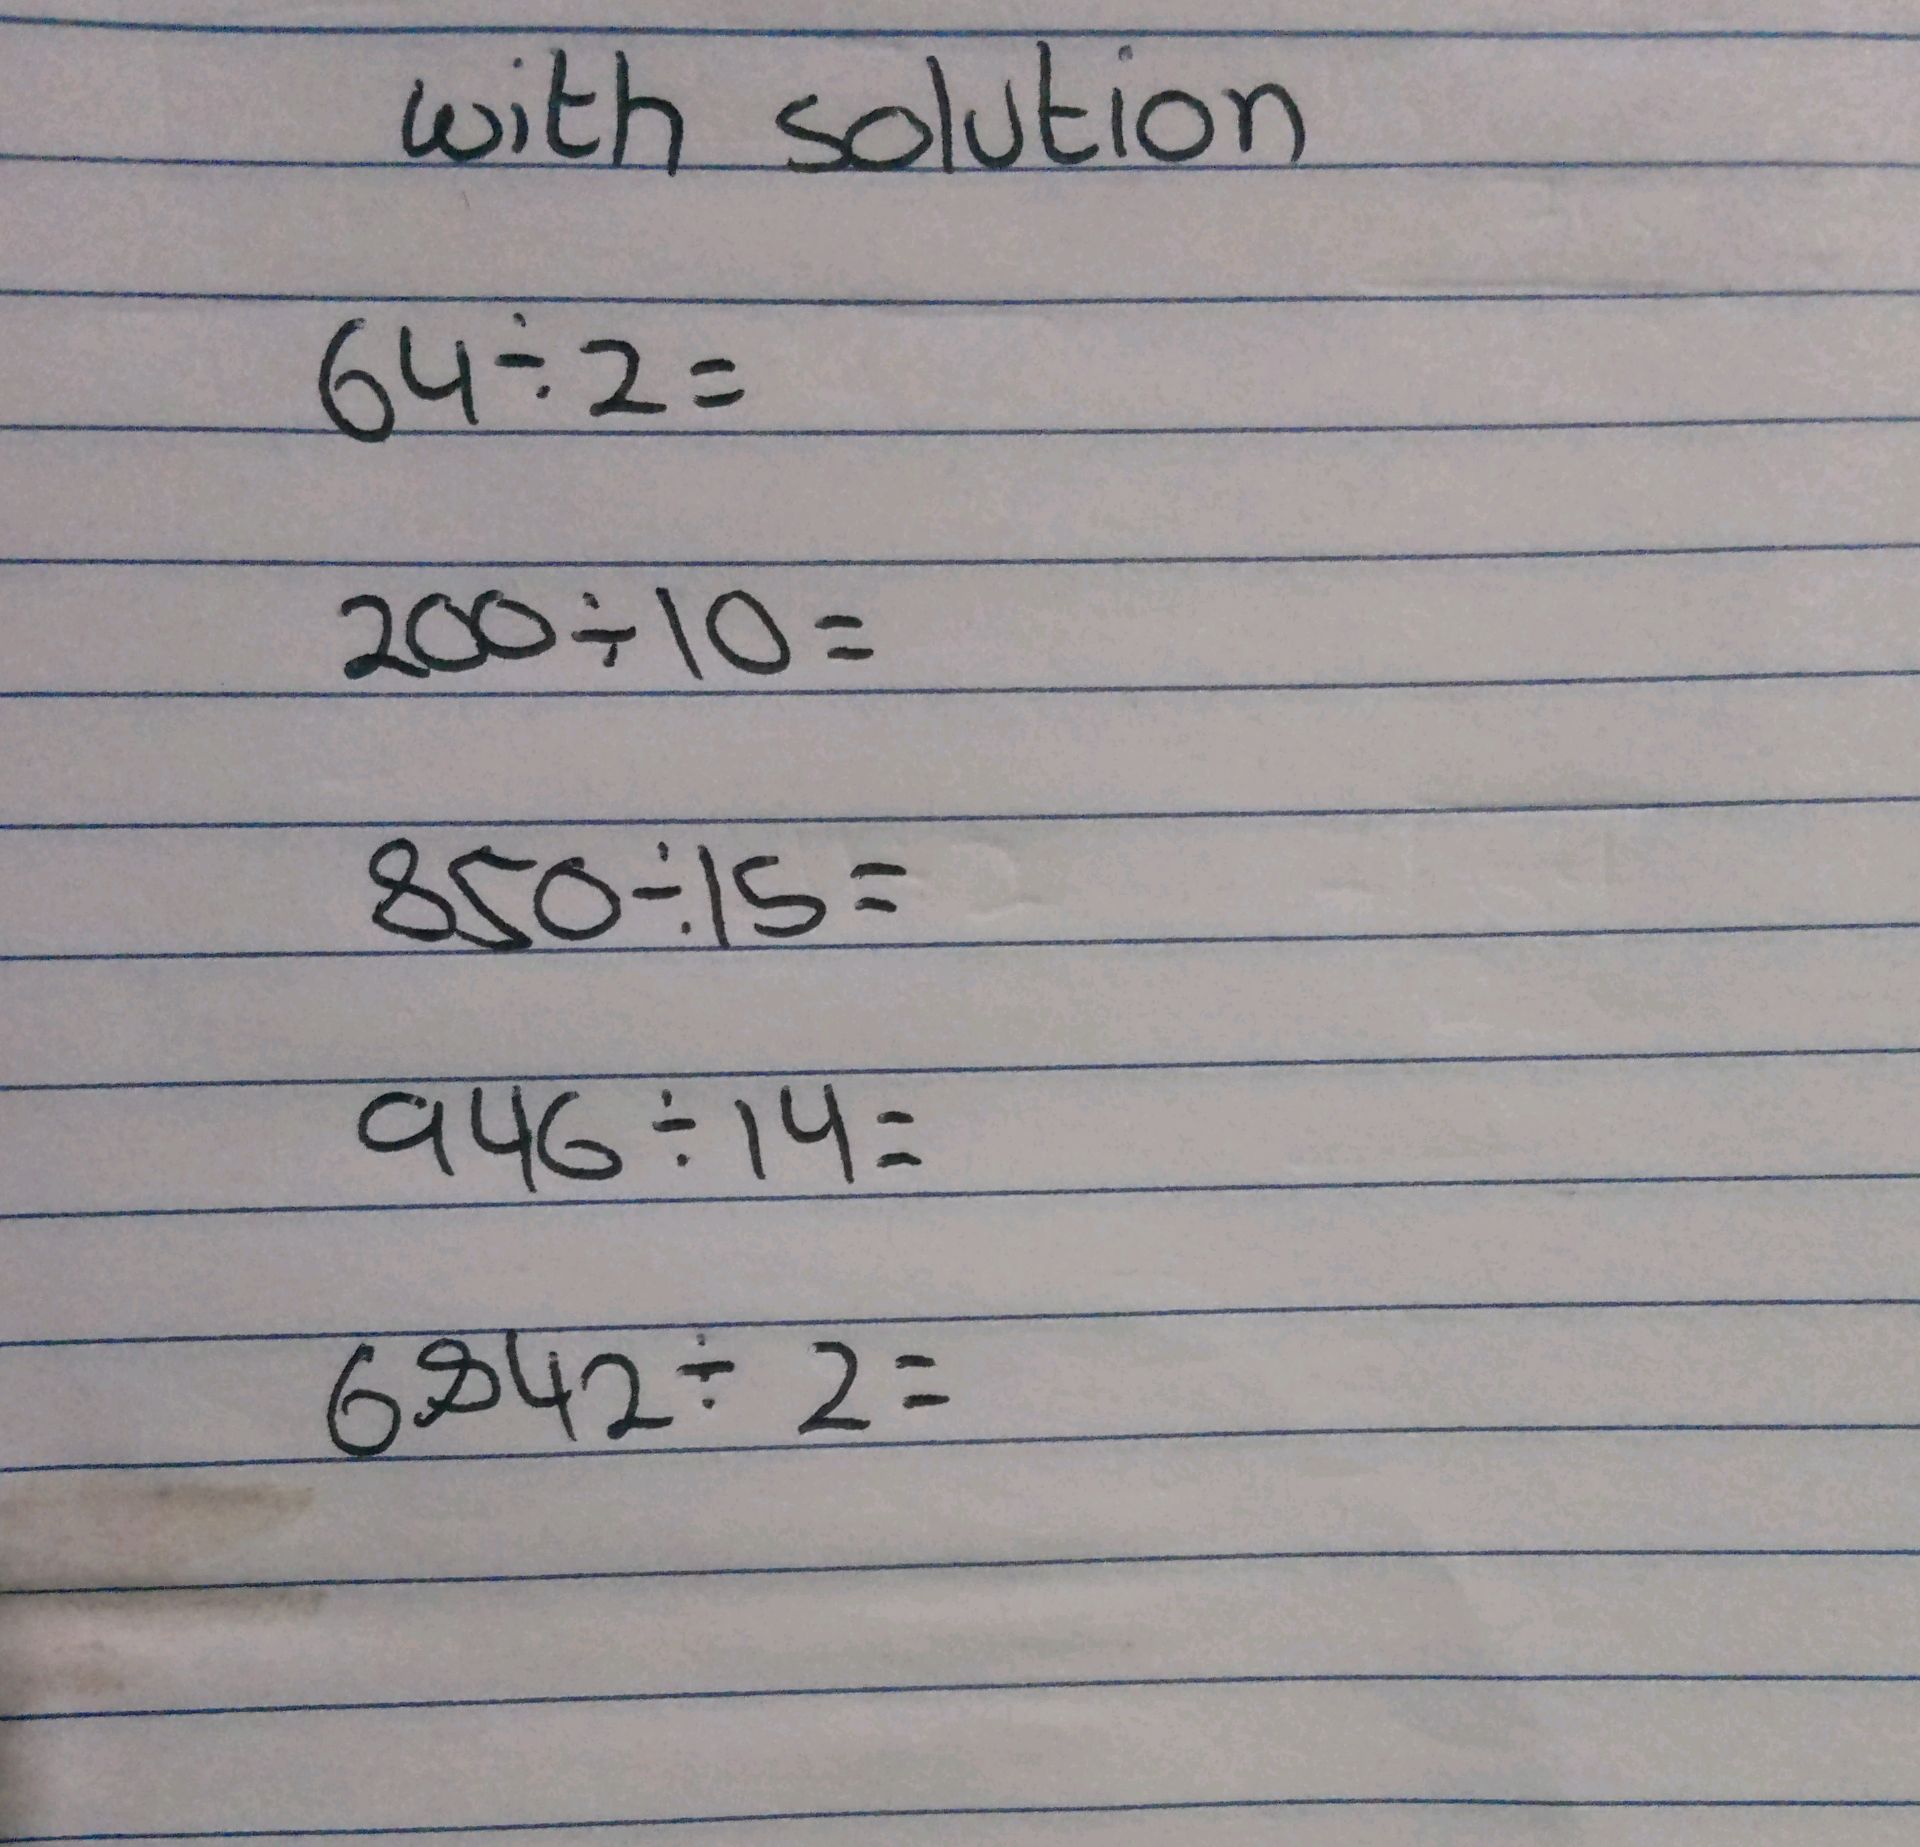 with solution
64÷2=
200÷10=
850÷15=
946÷14=
6842÷ 2=